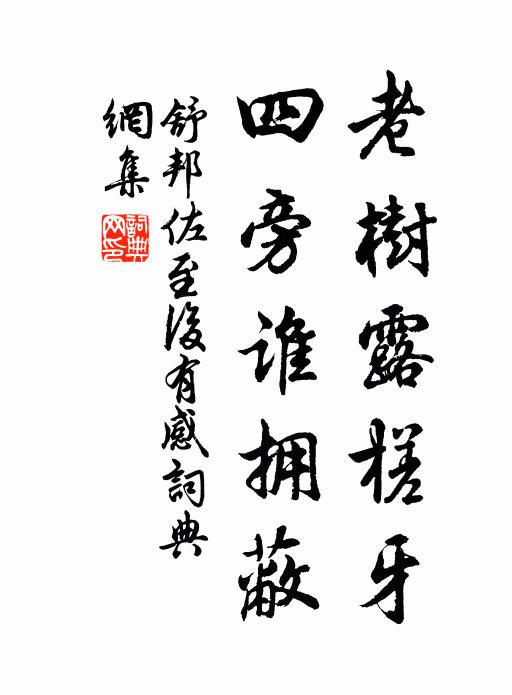 老樹露槎牙
四旁谁拥蔽
舒邦佐至後有感詞典
網集
詞典
网印